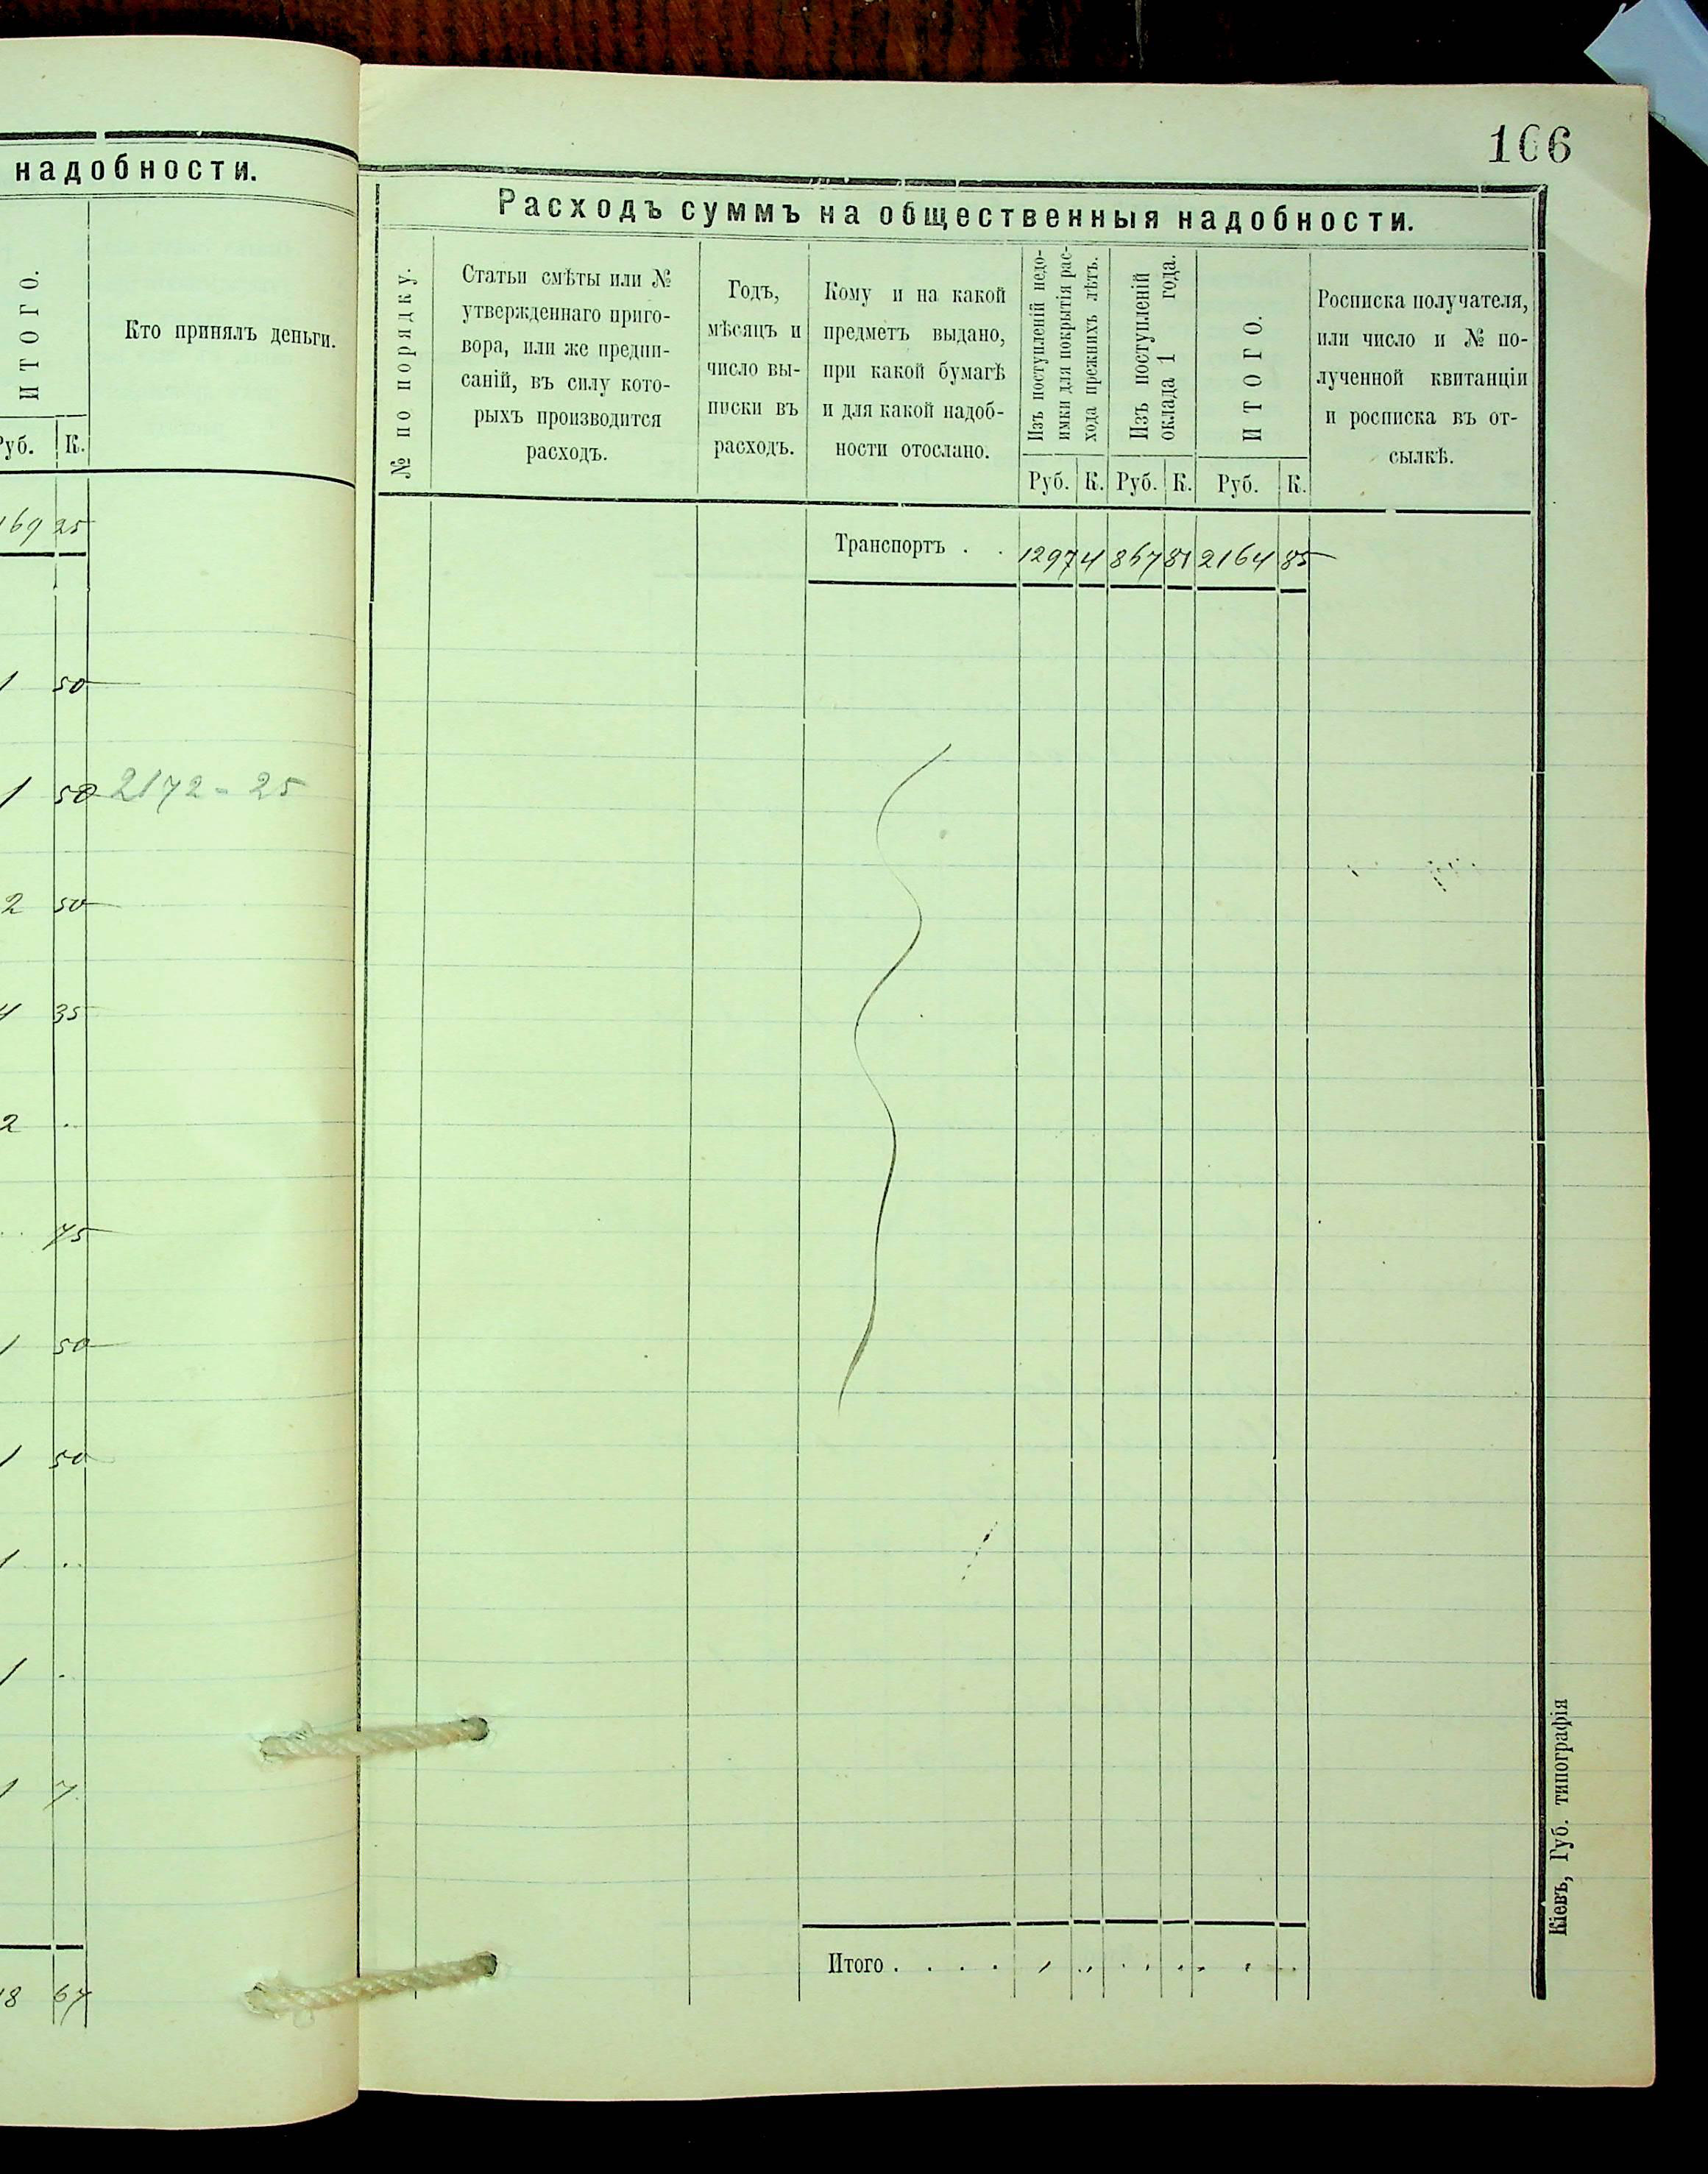 надобности.
ИТОГО.
Кто принялъ деньги.
Руб. К.
169 25
1 50
1 50 2172 - 25
2 50
4 35
2 .
.. 75
1 50
1 50
1 ..
1 .
1 7.
18 67
166
Расходъ суммъ на общественныя надобности.
№ по порядку.
Статьи смѣты или №
утвержденнаго приго-
вора, или же предпи-
саній, въ силу кото-
рыхъ производится
расходъ.
Годъ,
мѣсяцъ и
число вы-
писки въ
расходъ.
Кому и на какой
предметъ выдано,
при какой бумагѣ
и для какой надоб-
ности отослано.
Изъ поступленій недо-
имки для покрытія рас-
хода прежнихъ лѣтъ.
Изъ поступленій
оклада 1 года.
ИТОГО.
Росписка получателя,
или число и № по-
лученной квитанціи
и росписка въ от-
сылкѣ.
Руб. К. Руб. К. Руб. К.
Транспортъ . . 1297 4 867 81 2164 85
Итого . . . . .
Кіевъ, Губ. типографія